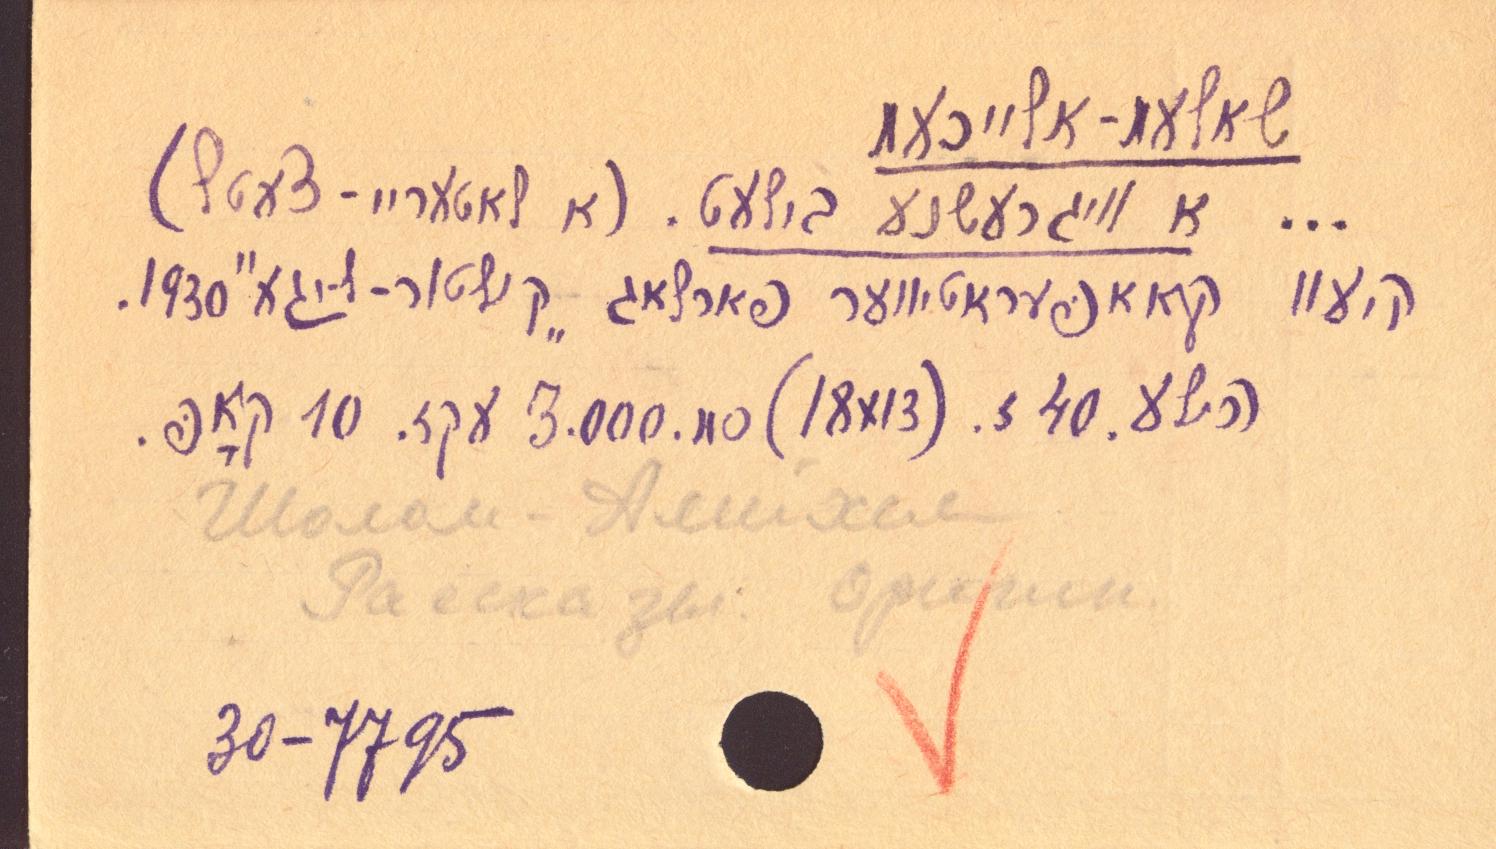 שאלעמ-אלייכעמ
... א וויגרעשנע בילעט. (א לאטעריי-צעטל)
קיעוו קאאפּעראטיווער פארלאג „קולטור-ליגע" 1930.
הילע. 40 ז. (18x13) סמ. 3.000 עקז. 10 קאָפ.
Шолом-Алейхем
Рассказы. оригин.
30-7795